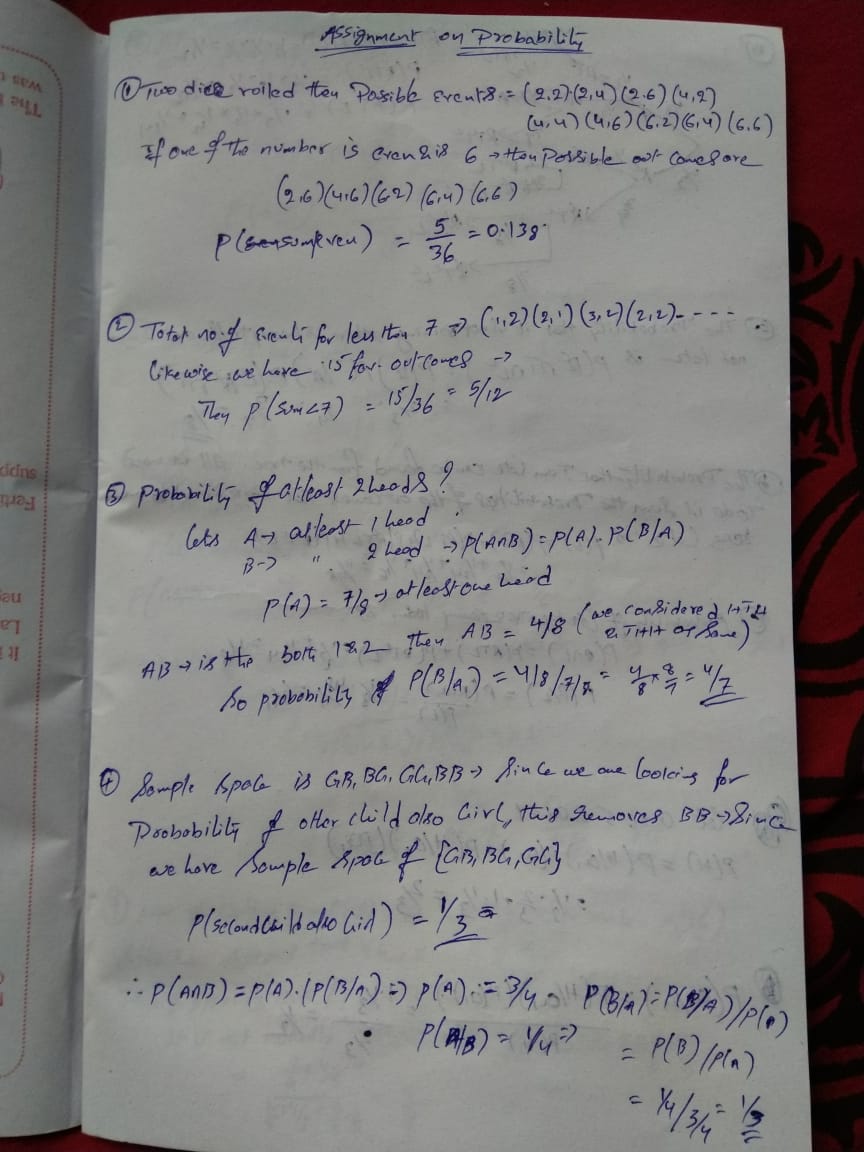 Assignment on Probability
① Two dice rolled then Possible Events = (2,2)(2,4)(2,6)(4,2)
(4,4)(4,6)(6,2)(6,4)(6,6)
If one of the number is even & is 6 → then possible out comes are
(2,6)(4,6)(6,2)(6,4)(6,6)
P( sum even) = 5/36 = 0.138
② Total no of Events for less than 7 ⇒ (1,2)(2,1)(3,2)(2,2)-----.
likewise we have 15 fav. outcomes →
Then P(sum<7) = 15/36 = 5/12
③ Probability of atleast 2 heads?
lets A → atleast 1 head
B → " 2 head → P(A∩B) = P(A). P(B/A)
P(A) = 7/8 → atleast one head
AB → is the both 1 & 2 then AB = 4/8 (we considered HTH
& THH as same)
So probability of P(B/A) = 4/8 / 7/8 = 4/8 × 8/7 = 4/7
④ Sample space is GB, BG, GG, BB → Since we are looking for
Probability of other child also Girl, this removes BB → Since
we have sample space of {GB, BG, GG}
P(second child also Girl) = 1/3
∴ P(A∩B) = P(A).(P(B/A) ⇒ P(A) = 3/4 P(B/A) = P(B/A)/P(A)
P(A/B) = 1/4 ⇒ = P(B)/P(A)
= 1/4/3/4 = 1/3